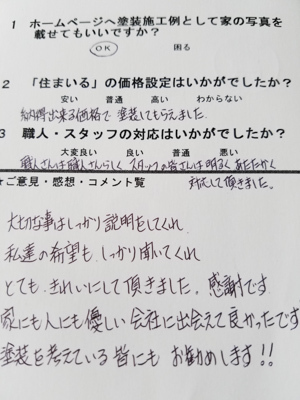 1 ホームページへ塗装施工例として家の写真を
載せてもいいですか？
OK 困る
2 「住まいる」の価格設定はいかがでしたか？
安い 普通 高い わからない
納得出来る価格で 塗装してもらえました。
3 職人・スタッフの対応はいかがでしたか？
大変良い 良い 普通 悪い
職人さんは職人さんらしく スタッフの皆さんは明るく あたたかく
★ご意見・感想・コメント覧 対応して頂きました。
大切な事はしっかり説明をしてくれ
私達の希望も しっかり聞いてくれ
とても きれいにして頂きました。感謝です
家にも人にも優しい 会社に出会えて良かったです
塗装を考えている 皆にも お勧めします!!